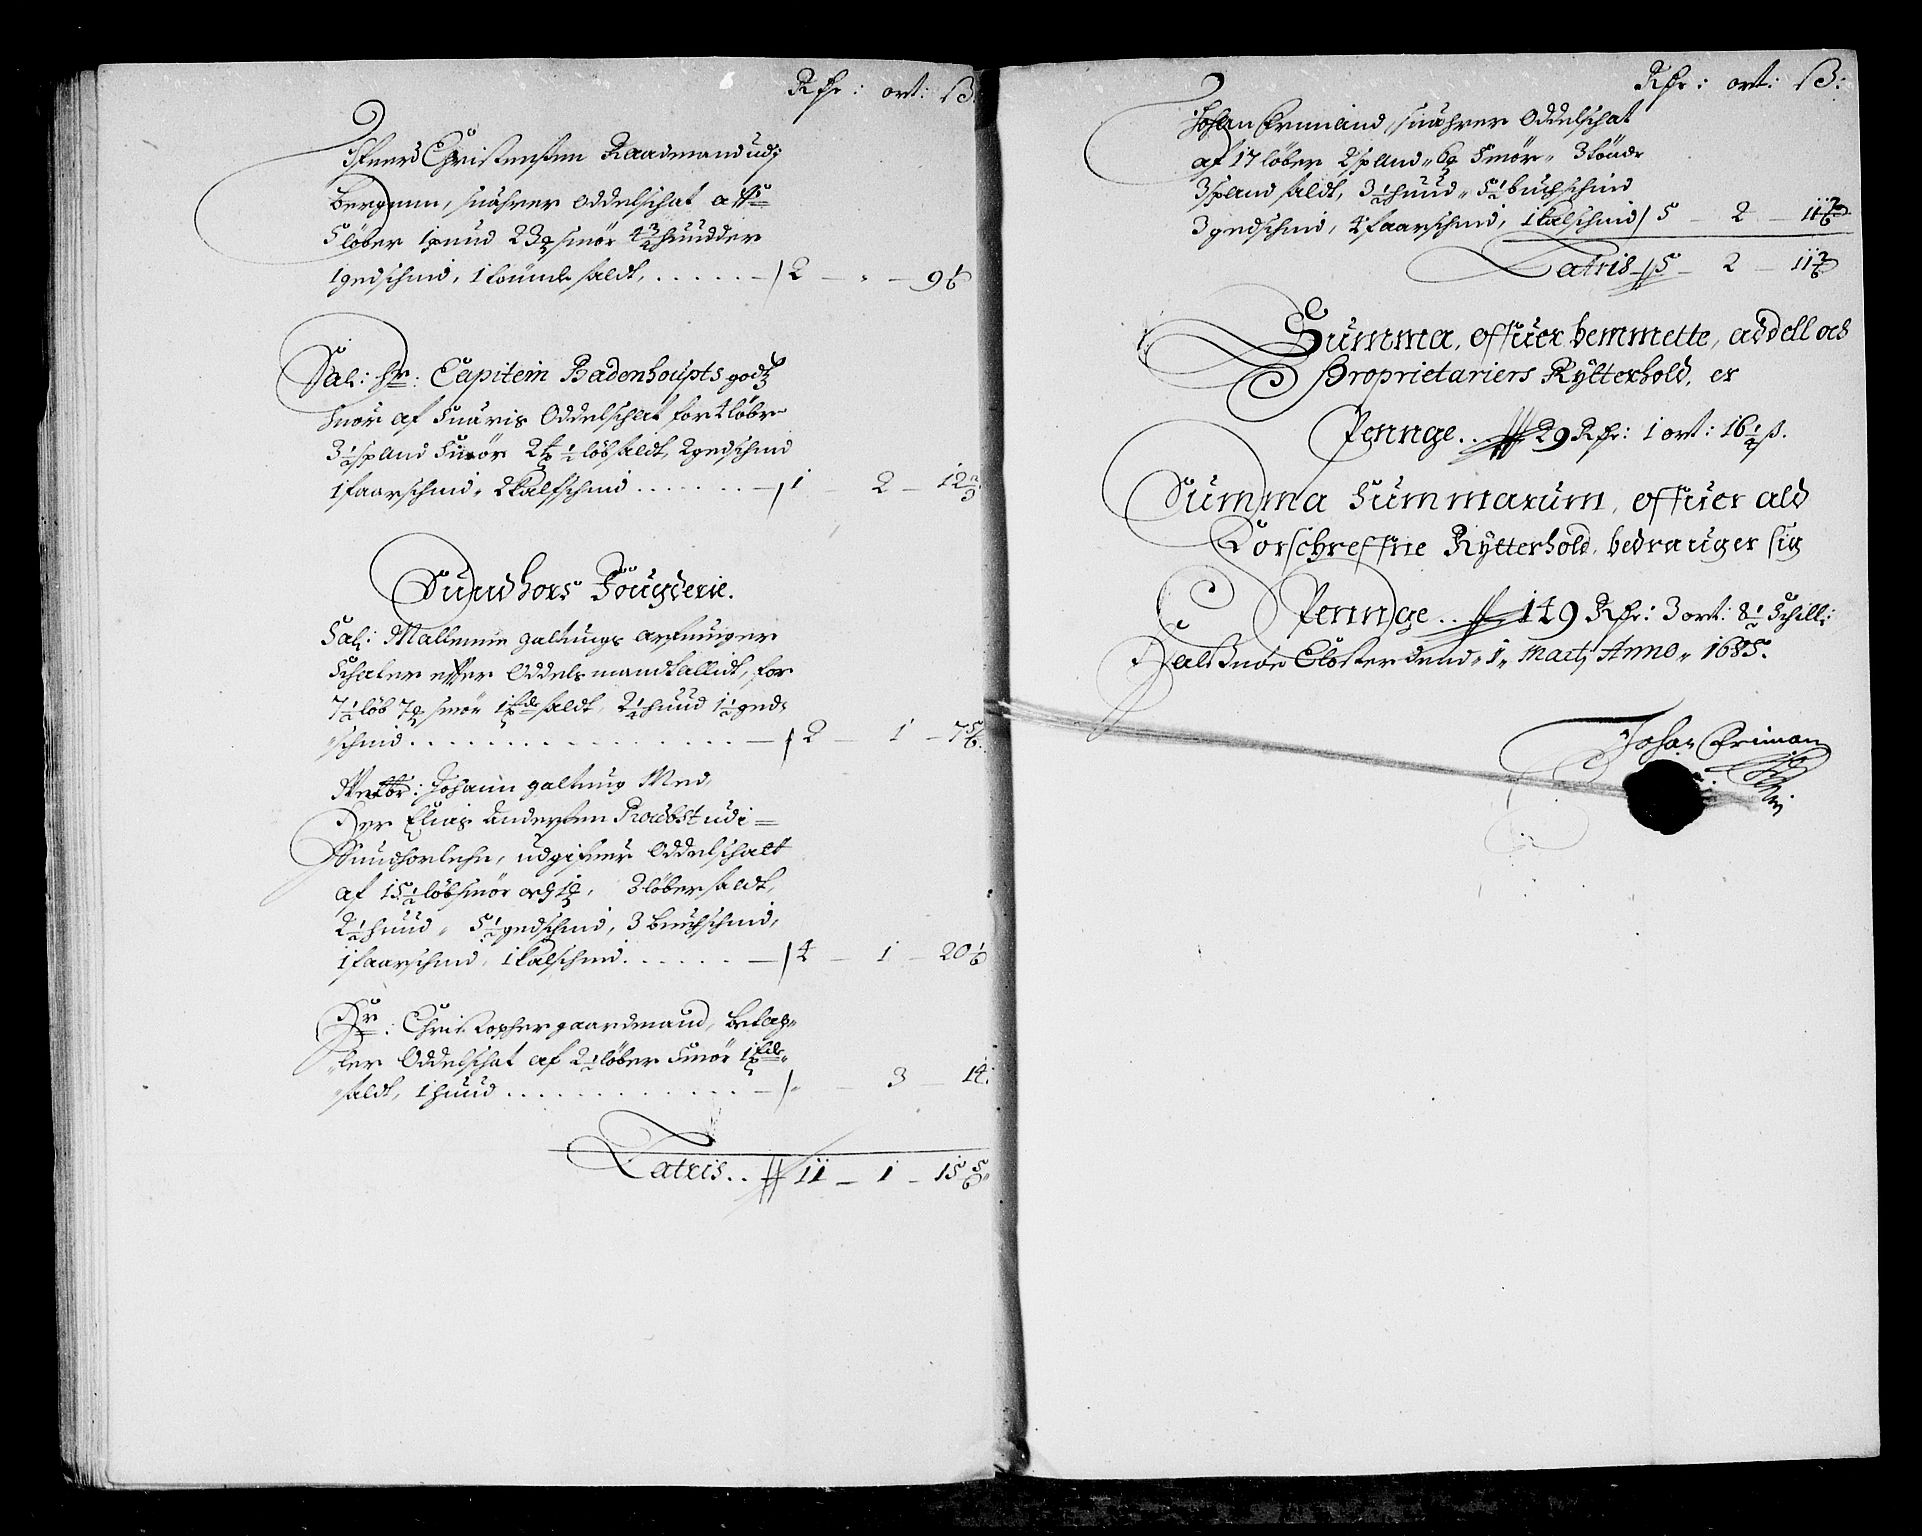 Rdr: ort: ß:
Christensen Raadmand udj
Bergenn, suahrer Oddelschat aff
5 løber 1 pund 23 smør 4¾ huudder
1 gedschind, 1 tønde saldt, . . . . . . 2 – „ – 9
Sal: Hr: Capitein Badenhoupts godtz
suar af suaris Oddelschat for 4 løber
3½ spand smør 2 ½ løb saldt, 2 gedschind
1 faarschind, 2 kalfschind . . . . . . 1 – 2 – 12
Sundhors Fougderie.
Sal: Mallennie galtungs arfuinger
Schater efter Oddels mandtallidt, for
7½ løb 7 smør saldt, 2¼ huud 1½ ged-
schind. . . . . . . . . . . . . 2 – 1 – 7⅚.
Welb: Johann galtung Med,
Her Elias Andersen Prowbst udi
Sundhorlehn, udgifuer Oddelschatt
af 15½ løb smør och 2 løber saldt,
2½ huud „ 5½ gedschind, 3 Buchschind,
1 faarschind, 1 kalschind. . . . . . 4 – 1 – 20⅙
Hr: Christopher gaardmand, betag-
ler Oddelschat af 2½ løber smør
saldt, 1 huud . . . . . . . . . . . „ – 3 – 14:
Latris . . 11 – 1 – 15⅚
Rdr: ort: ß:
Johan Ermand, suahrer Oddelschat
af 17 løber 2 spand „ 6 smør „ 3 tønder
3 spand saldt, 3½ huud „ 5½ buchschind
3 gedschind, 4 faarschind, 1 kalschind 5 – 2 – 11
Latris 5 – 2 – 11
Summa, offuer bemmelte, addell och
Proprietariers Rytterhold, er
Pennge . . 29 Rdr: 1 ort: 16½ ß.
Summa Summarum, offuer ald
Forschreffne Rytterhold, bedrauger sig
Penndge . . 149 Rdr: 3 ort: 8½ Schill:
Halssnøe Closter dend „ 1 „ Marty Anno „ 1685.
Johan Erimann